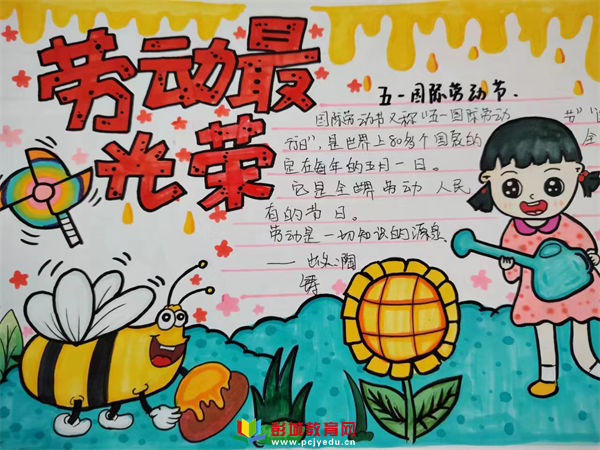 劳动最
光荣
五一国际劳动节.
国际劳动节又称"五一国际劳动节"
节日",是世界上80多个国家的全
定在每年的五月一日。
它是全世界劳动人民
有的节日。
劳动是一切知识的源泉
——
陶
铸
彭城教育网
www.pcjyedu.cn